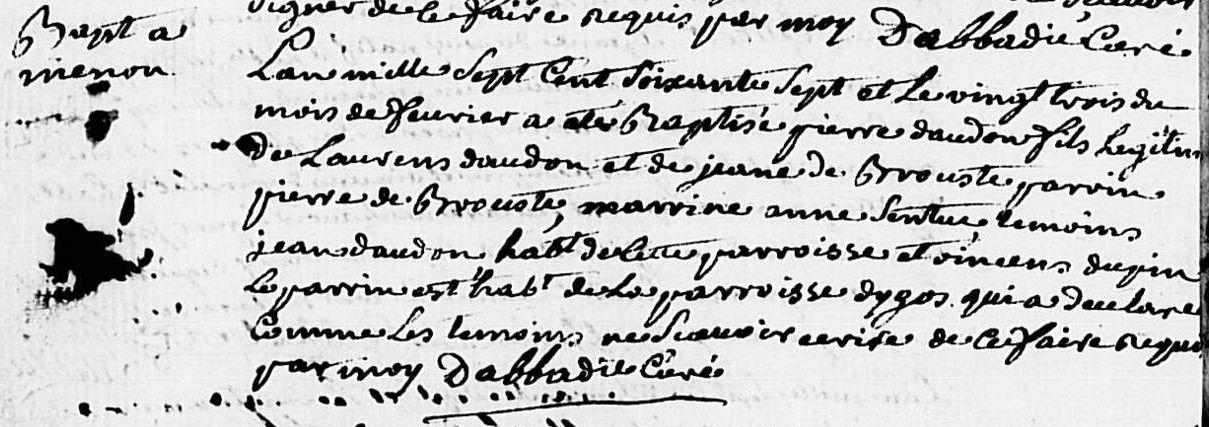 signer de ce faire requis par moy Dabbadie Curé
Bapt a
menou
Lan mille Sept Cent Soixante Sept et Le vingt trois du
mois de feurier a eté Baptisé pierre daudon fils Legitim
De Laurens daudon et de jeane de Brouste parrin
pierre de Brouste, marrine anne Sentuc temoins
jean daudon habt de Cette parroisse et vincens dupin
Le parrin est habt de La parroisse dygos qui a declaré
Comme Les temoins ne Scauoir ecrire de Ce faire requis
par moy Dabbadie Curé